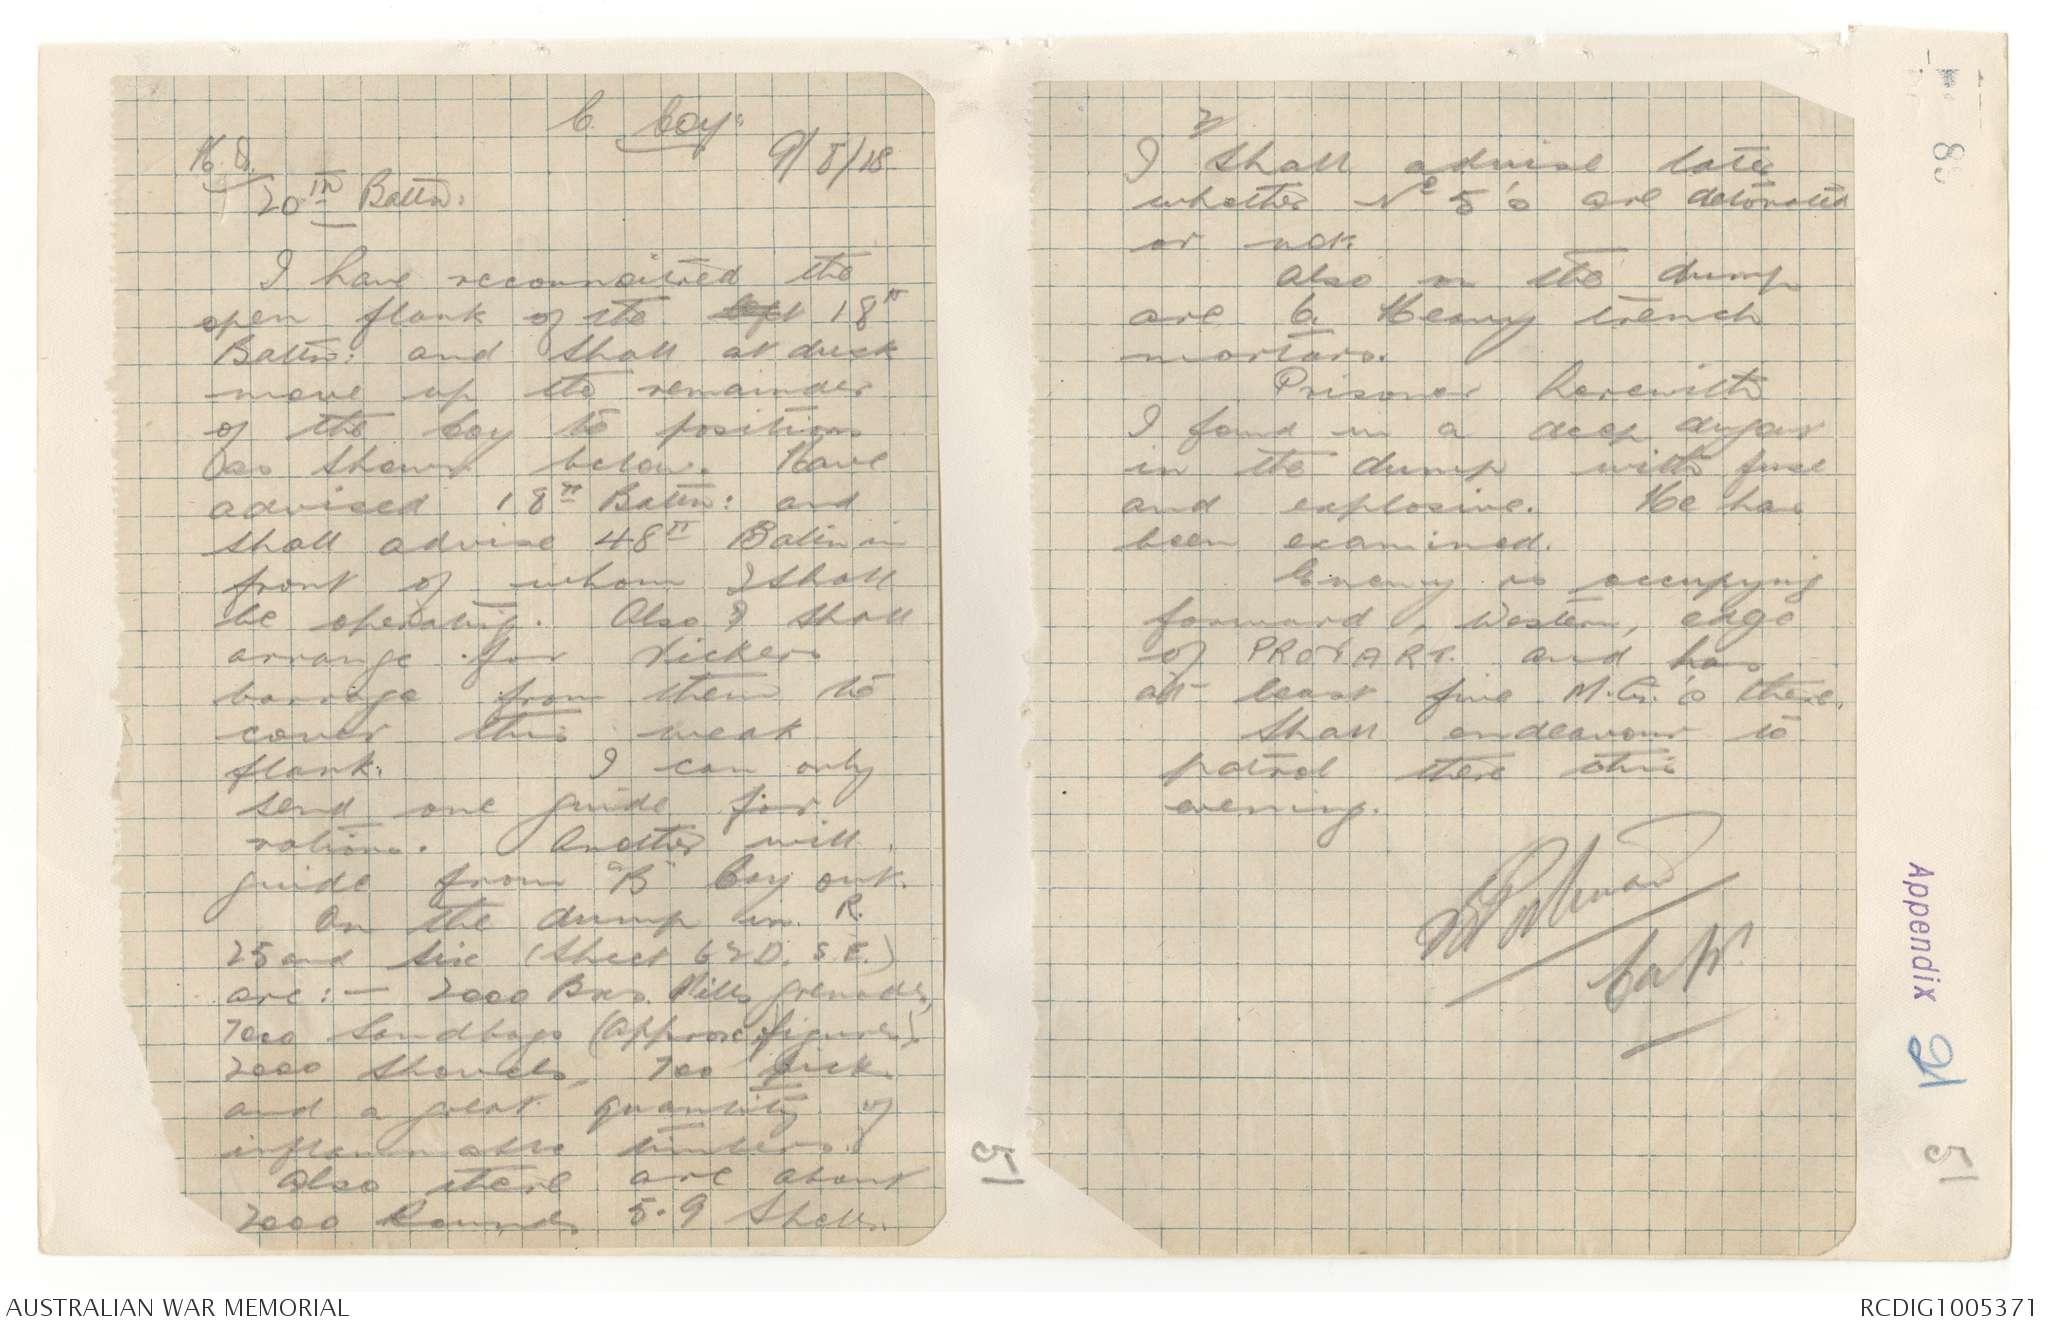 C. Coy:
9/8/18.
H.Q.
20th Battn:
I have reconnoitred the
open flank of the left 18th
Battn: and shall at dusk
move up the remainder
of the Coy to positions
as shewn below. Have
advised 18th Battn: and
shall advise 48th Battn in
front of whom I shall
be operating. Also I shall
arrange for Vickers
barrage from them to
cover this weak
flank. I can only
send one guide for
rations. Another will
guide from "B" Coy out.
On the dump in R.
25 and six (Sheet 62D. S.E.)
are:- 2000 Mills grenades,
7000 Sandbags (approx figures)
2000 Shovels, 700 pick
and a great quantity of
inflammable timbers.
Also there are about
2000 Rounds 5.9 Shells.
2/
I shall advise later
whether No 5's are detonated
or not.
Also on the dump
are 6. Heavy trench
mortars.
Prisoner herewith
I found in a deep dugout
in the dump with fuse
and explosive. He has
been examined.
Enemy is occupying
forward, Western, edge
of PROYART. and has
at least five M.G.'s there.
Shall endeavour to
patrol there this
evening.
Capt.
83
Appendix 21
51
51
AUSTRALIAN WAR MEMORIAL
RCDIG1005371